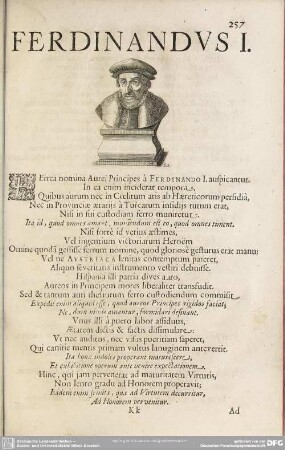 257
FERDINANDVS I.
FErrea nomina Aurei Principes à FERDINANDO I. auspicantur.
In ea enim inciderat tempora,
Quibus aurum nec in Cœlitum aris ab Hæreticorum perfidiâ,
Nec in Provinciæ ærariis à Turcarum insidiis tutum erat,
Nisi in sui custodiam ferro muniretur.
Ita id, quod omnes amant, moriendum est eo, quod omnes timent.
Nisi fortè id verius æstimes,
Vel ingenium victoriarum Heroëm
Omine quodã gessisse ferreum nomine, quod gloriosè gesturus erat manu:
Vel ne AUSTRIACA lenitas contemptum pateret,
Aliquo severitatis instrumento vestiri debuisse.
Hispania illi patria dives auro,
Aureos in Principem mores liberaliter transfudit.
Sed & tantum auri thesaurum ferro custodiendum commisit.
Expedit enim aliquid esse, quod aureos Principes rigidos faciat;
Ne, dum nimis amantur, formidari desinant.
Unus illi à puero labor assiduus,
Ætatem dictis & factis dissimulare.
Ut nec auditus, nec visus pueritiam saperet,
Qui canitie mentis primam vultus lanuginem antevertit.
Ita bona indoles properat maturescere,
Et culpatione votorum ante venire expectationem.
Hinc, quò jam pervenerat ad maturitatem Virtutis,
Non lento gradu ad Honorem properavit;
Eadem enim semita, qua ad Virtutem decurritur,
Ad Honorem pervenitur.
K k
Ad